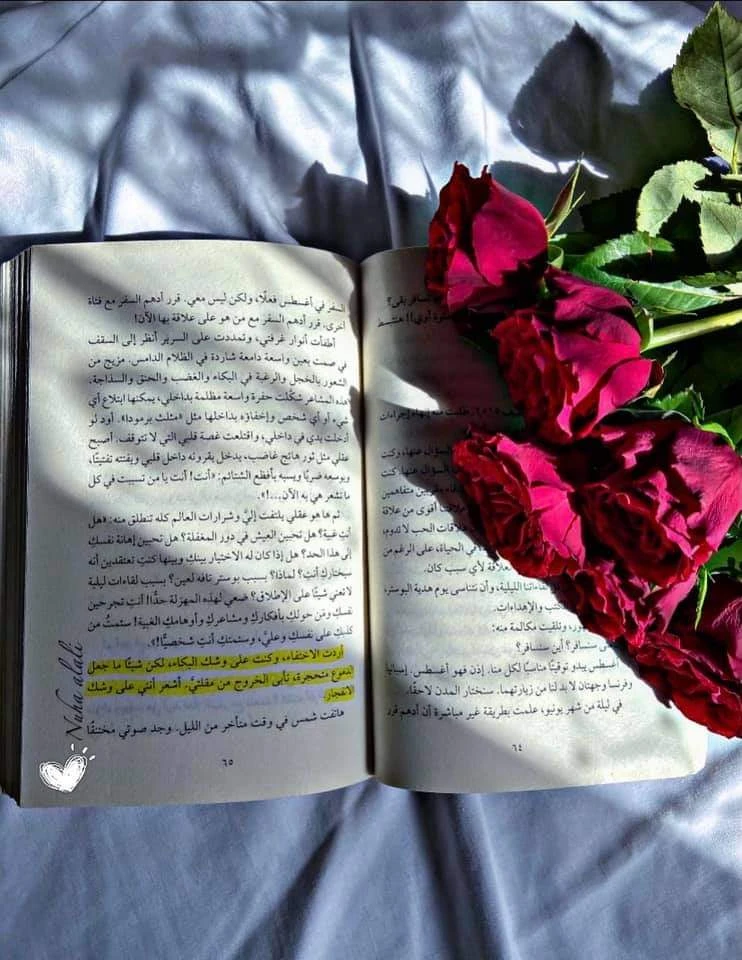 سافر بقى؟
أوي!! هتتبسط
طلبت منه إنهاء إجراءات
السؤال عنها، وكنت
السؤال عنها، كنت
طرفين متفاهمين
أقوى من علاقة
علاقات الحب لا تدوم،
في الحياة، على الرغم من
علاقة لأي سبب كان.
لقاءاتنا الليلية، وأن نتناسى يوم هدية البوستر،
الكتب والإهداءات.
وتلقيت مكالمة منه:
سنسافر؟ أين سنسافر؟
أغسطس يبدو توقيتًا مناسبًا لكل منا. إذن فهو أغسطس. إسبانيا
وفرنسا وجهتان لا بد لنا من زيارتهما. سنختار المدن لاحقًا.
في ليلة من شهر يونيو، علمت بطريقة غير مباشرة أن أدهم قرر
٦٤
السفر في أغسطس فعلًا، ولكن ليس معي. قرر أدهم السفر مع فتاة
أخرى، قرر أدهم السفر مع من هو على علاقة بها الآن!
أطفأت أنوار غرفتي، وتمددت على السرير أنظر إلى السقف
في صمت بعين واسعة دامعة شاردة في الظلام الدامس. مزيج من
الشعور بالخجل والرغبة في البكاء والغضب والحنق والسذاجة.
هذه المشاعر شكَّلت حفرة واسعة مظلمة بداخلي، يمكنها ابتلاع أي
شيء أو أي شخص وإخفاؤه بداخلها مثل «مثلث برمودا». أود لو
أدخلت يدي في داخلي، واقتلعت غصة قلبي التي لا تتوقف. أصبح
عقلي مثل ثور هائج غاضب، يدخل بقرونه داخل قلبي ويفتته تفتيتًا،
ويوسعه ضربًا ويسبه بأفظع الشتائم: «أنت! أنت يا من تسببت في كل
ما نشعر هي به الآن...!».
ثم ها هو عقلي يلتفت إليَّ وشرارات العالم كله تنطلق منه: «هل
أنتِ غبية؟ هل تحبين العيش في دور المغفلة؟ هل تحبين إهانة نفسكِ
إلى هذا الحد؟ هل إذا كان له الاختيار بينك وبينها كنتِ تعتقدين أنه
سيختاركِ أنتِ؟ لماذا؟ بسبب بوستر تافه لعين؟ بسبب لقاءات ليلية
لا تعني شيئًا على الإطلاق؟ ضعي لهذه المهزلة حدًّا! أنتِ تجرحين
نفسكِ ومَن حولكِ بأفكاركِ ومشاعركِ وأوهامكِ الغبية! سئمتُ من
كذبكِ على نفسكِ وعليَّ، وسئمتكِ أنتِ شخصيًّا!».
أردت الاختفاء، وكنت على وشك البكاء، لكن شيئًا ما جعل
الدموع متحجرة، تأبى الخروج من مقلتيَّ. أشعر أنني على وشك
الانفجار
هاتفت شمس في وقت متأخر من الليل. وجد صوتي مختنقًا
٦٥
Nuha alali